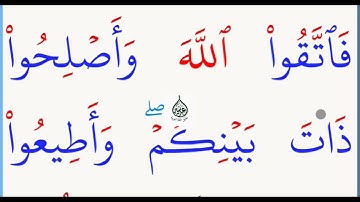 فَٱتَّقُوا۟ ٱللَّهَ وَأَصْلِحُوا۟
ذَاتَ بَيْنِكُمْ ۖ وَأَطِيعُوا۟